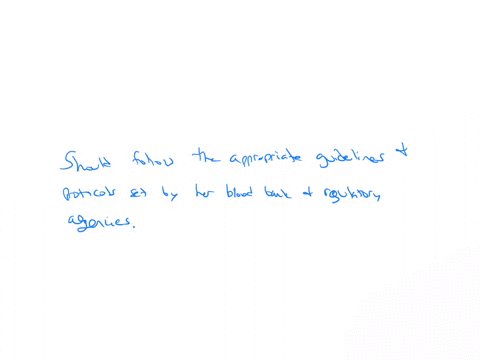 Should follow the appropriate guidelines &
proticols set by her blood bank & regulatory
agencies.